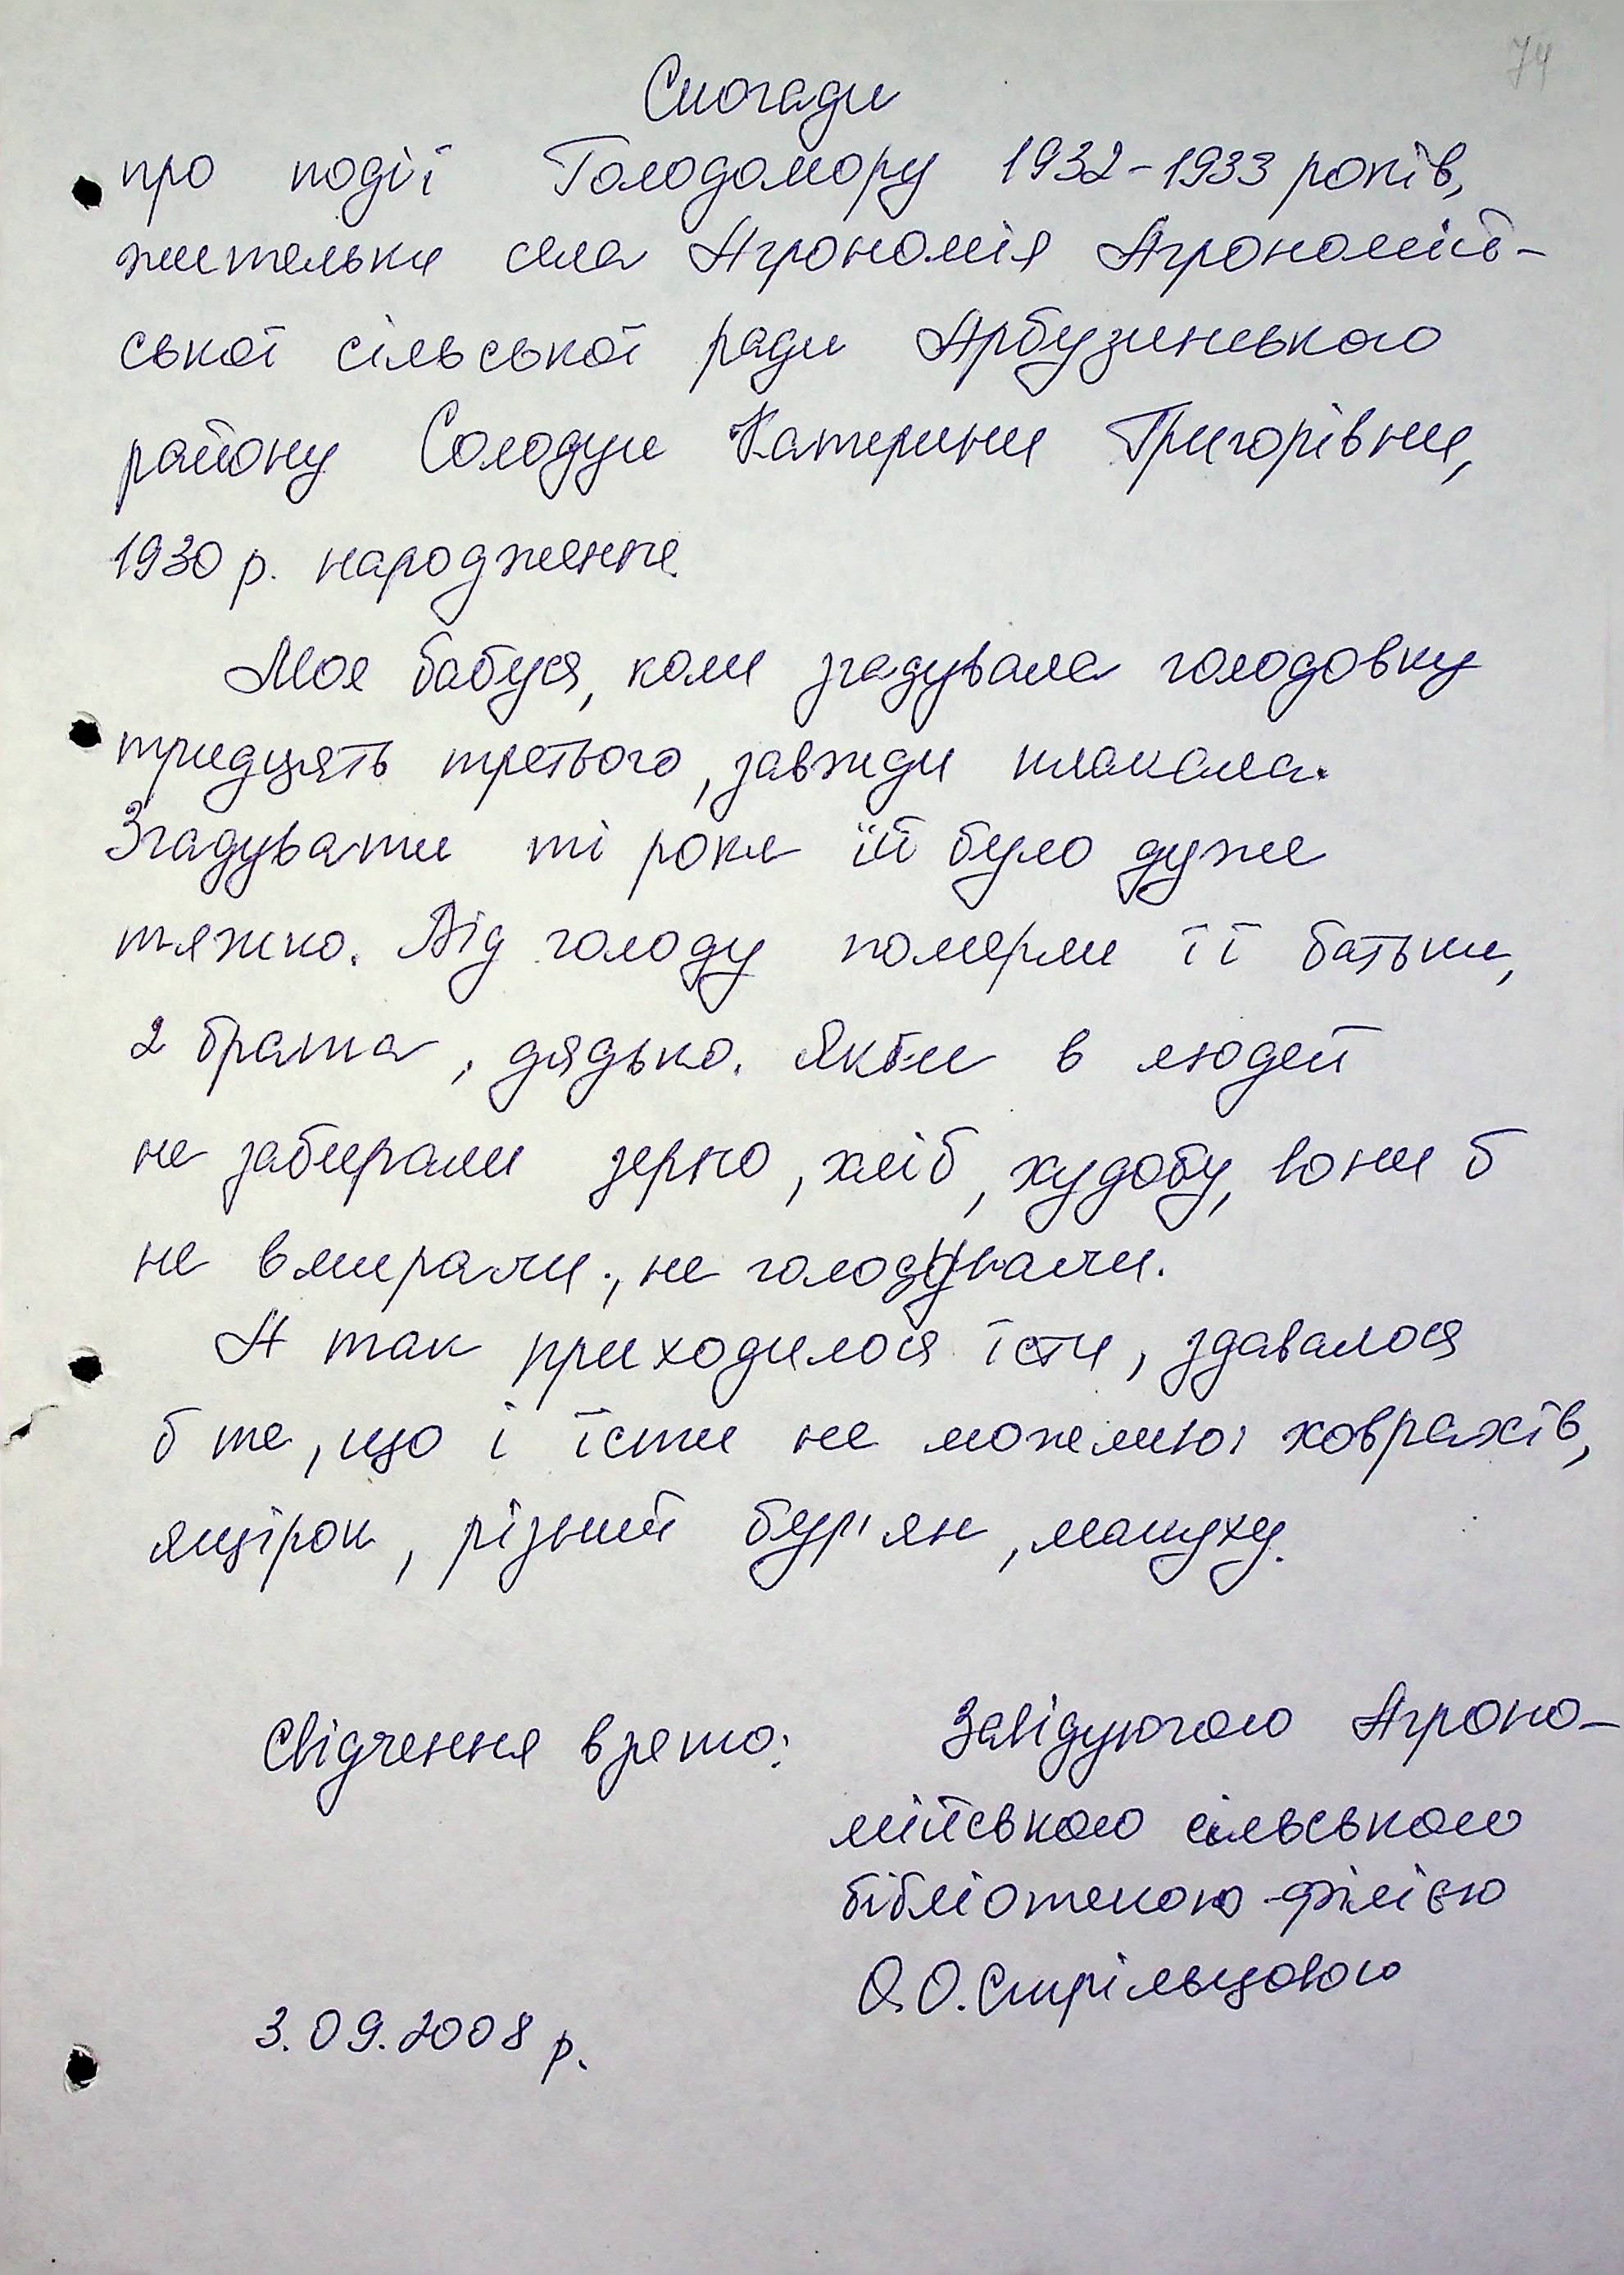 74
Спогади
про події Голодомору 1932-1933 років,
жительки села Агрономія Агрономій-
ської сільської ради Арбузинського
району Солодун Катерини Григорівни,
1930 р. народження.
Моя бабуся, коли згадувала голодовку
тридцять третього, завжди плакала.
Згадувати ті роки їй було дуже
тяжко. Від голоду померли її батьки,
2 брата, дядько. Якби в людей
не забирали зерно, хліб, худобу, вони б
не вмирали, не голодували.
А так приходилося їсти, здавалося
б те, що і їсти не можливо: ховрахів,
ящірок, різний бур'ян, макуху.
Свідчення взято: Завідуючою Агроно-
мійською сільською
бібліотекою-філією
О.О. Стрільцовою
3.09.2008 р.